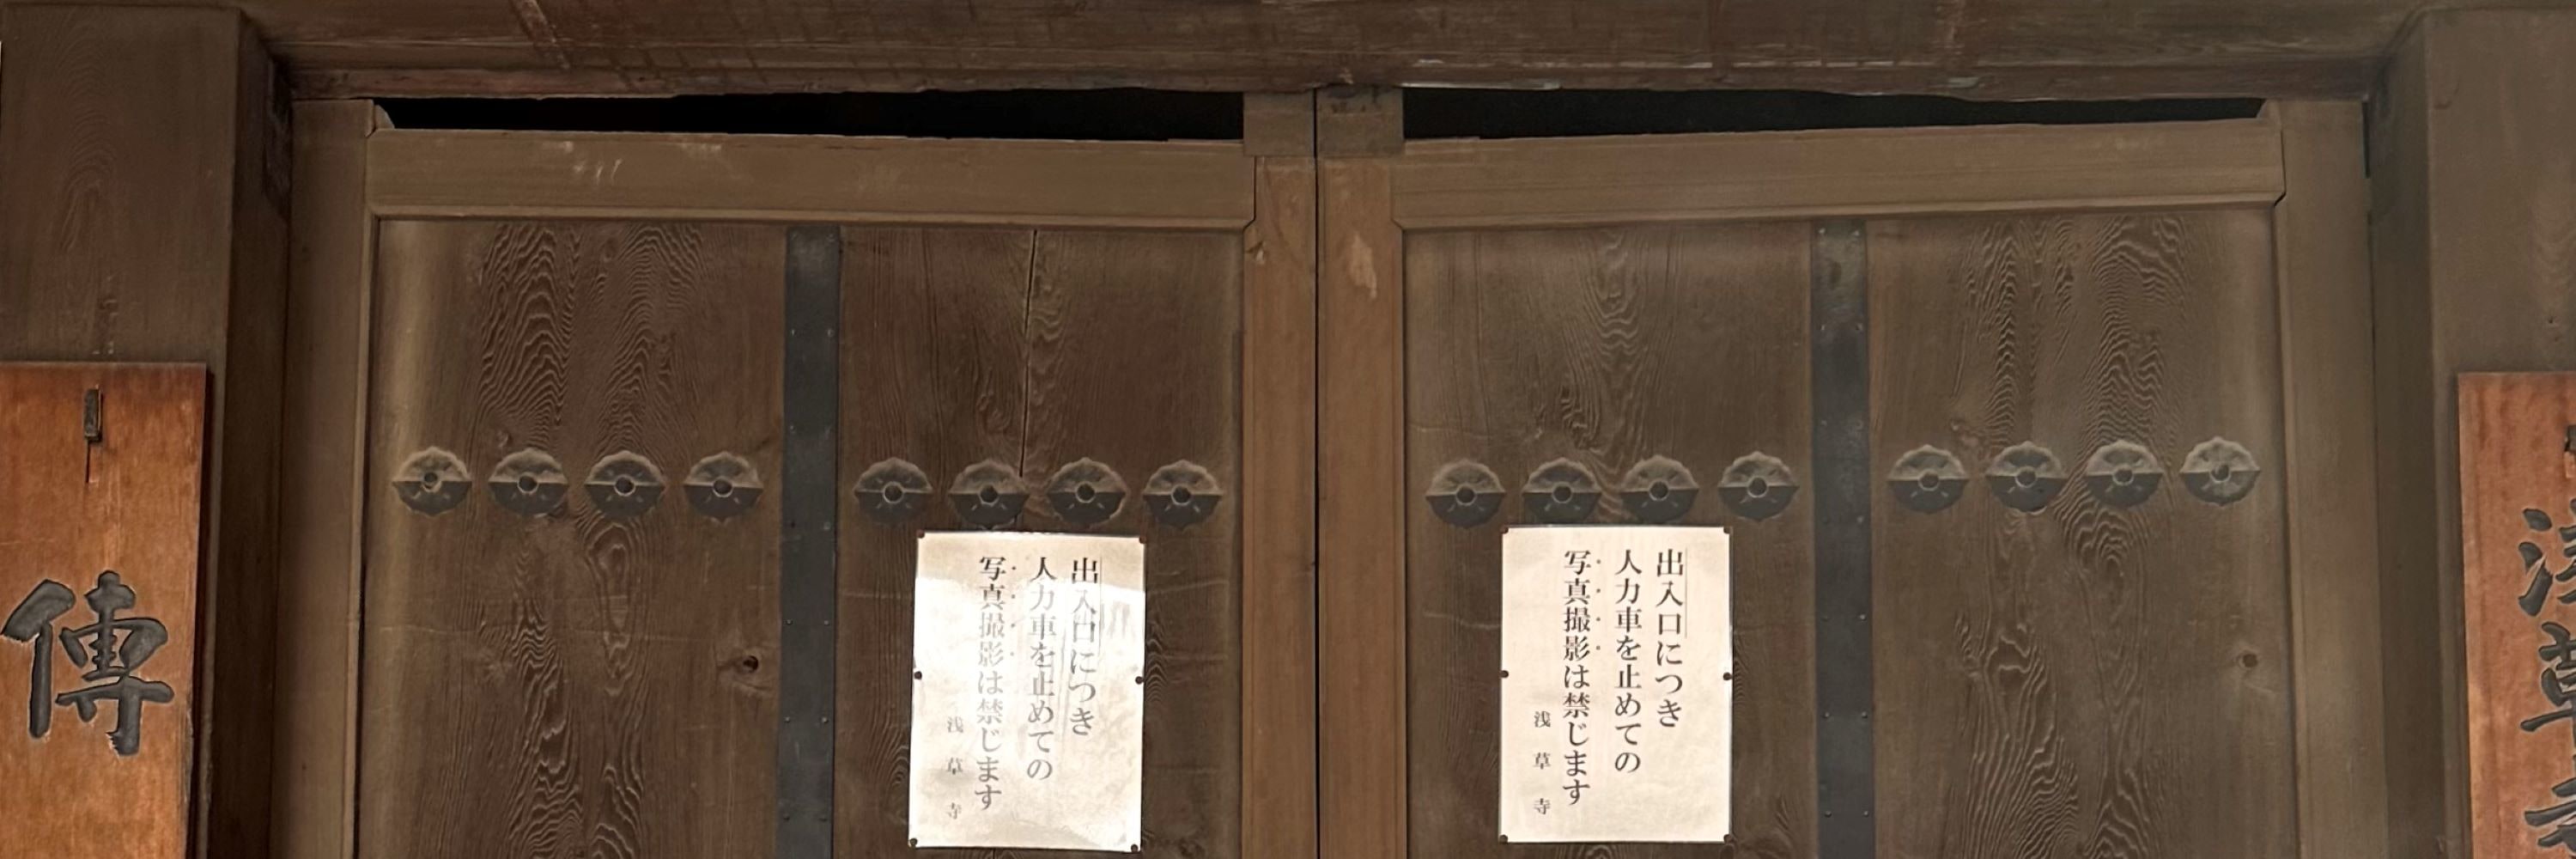 出入口につき
人力車を止めての
写真撮影は禁じます
浅草寺
出入口につき
人力車を止めての
写真撮影は禁じます
浅草寺
傳